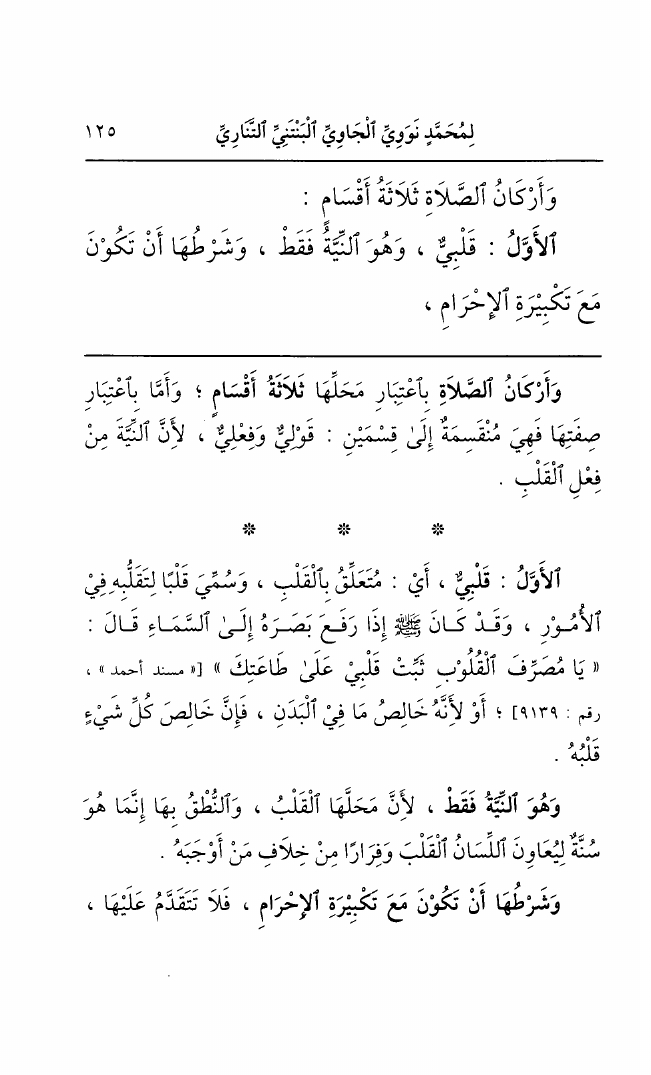 لِمُحَمَّدٍ نَوَوِيِّ ٱلْجَاوِيِّ ٱلْبَنْتَنِيِّ ٱلتَّنَارِيِّ ١٢٥
وَأَرْكَانُ ٱلصَّلَاةِ ثَلَاثَةُ أَقْسَامٍ :
ٱلأَوَّلُ : قَلْبِيٌّ ، وَهُوَ ٱلنِّيَّةُ فَقَطْ ، وَشَرْطُهَا أَنْ تَكُوْنَ
مَعَ تَكْبِيْرَةِ ٱلإِحْرَامِ ،
وَأَرْكَانُ ٱلصَّلَاةِ بِٱعْتِبَارِ مَحَلِّهَا ثَلَاثَةُ أَقْسَامٍ ؛ وَأَمَّا بِٱعْتِبَارِ
صِفَتِهَا فَهِيَ مُنْقَسِمَةٌ إِلَىٰ قِسْمَيْنِ : قَوْلِيٌّ وَفِعْلِيٌّ ، لأَنَّ ٱلنِّيَّةَ مِنْ
فِعْلِ ٱلْقَلْبِ .
* * *
ٱلأَوَّلُ : قَلْبِيٌّ ، أَيْ : مُتَعَلِّقٌ بِٱلْقَلْبِ ، وَسُمِّيَ قَلْبًا لِتَقَلُّبِهِ فِيْ
ٱلأُمُوْرِ ، وَقَدْ كَانَ ﷺ إِذَا رَفَعَ بَصَرَهُ إِلَىٰ ٱلسَّمَاءِ قَالَ :
« يَا مُصَرِّفَ ٱلْقُلُوْبِ ثَبِّتْ قَلْبِيْ عَلَىٰ طَاعَتِكَ » [« مسند أحمد » ،
رقم : ٩١٣٩] ؛ أَوْ لأَنَّهُ خَالِصُ مَا فِيْ ٱلْبَدَنِ ، فَإِنَّ خَالِصَ كُلِّ شَيْءٍ
قَلْبُهُ .
وَهُوَ ٱلنِّيَّةُ فَقَطْ ، لأَنَّ مَحَلَّهَا ٱلْقَلْبُ ، وَٱلنُّطْقُ بِهَا إِنَّمَا هُوَ
سُنَّةٌ لِيُعَاوِنَ ٱللِّسَانُ ٱلْقَلْبَ وَفِرَارًا مِنْ خِلَافِ مَنْ أَوْجَبَهُ .
وَشَرْطُهَا أَنْ تَكُوْنَ مَعَ تَكْبِيْرَةِ ٱلإِحْرَامِ ، فَلَا تَتَقَدَّمُ عَلَيْهَا ،